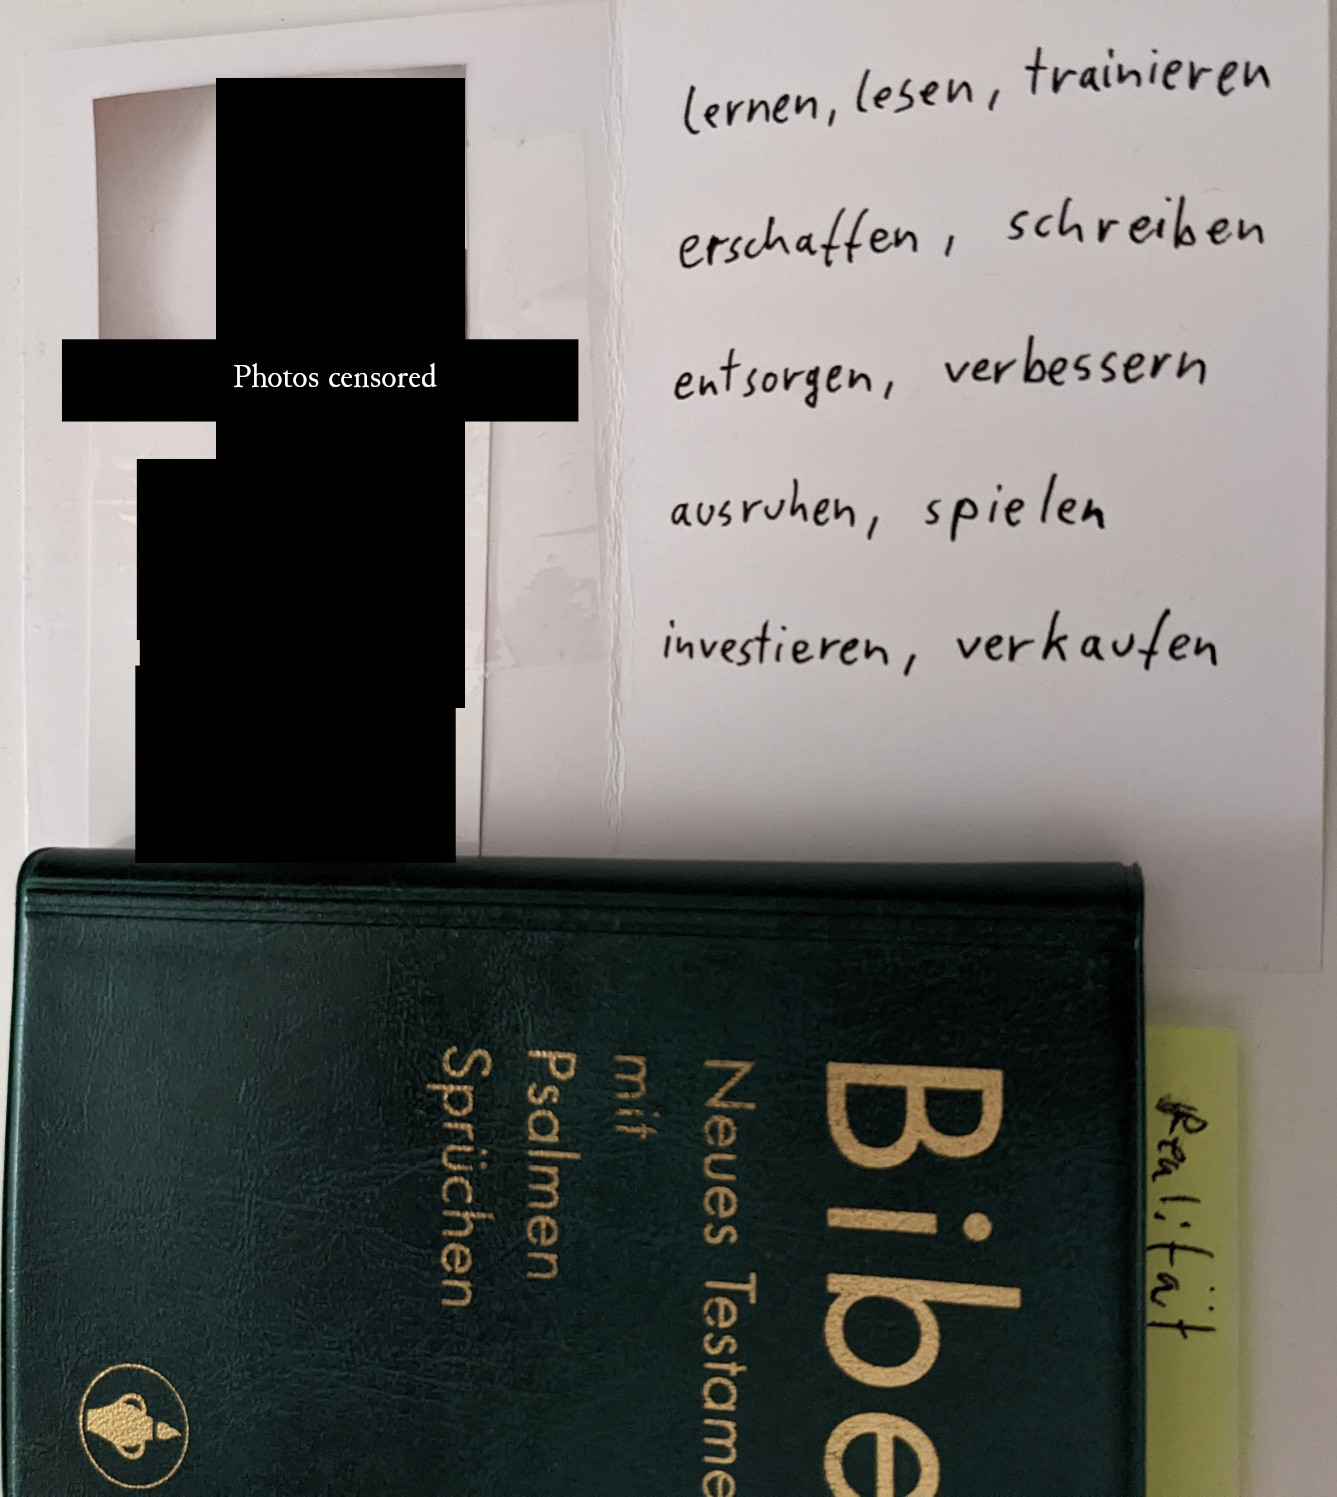 Photos censored
lernen, lesen, trainieren
erschaffen, schreiben
entsorgen, verbessern
ausruhen, spielen
investieren, verkaufen
Bibe
Neues Testame
mit
Psalmen
Sprüchen
Realität